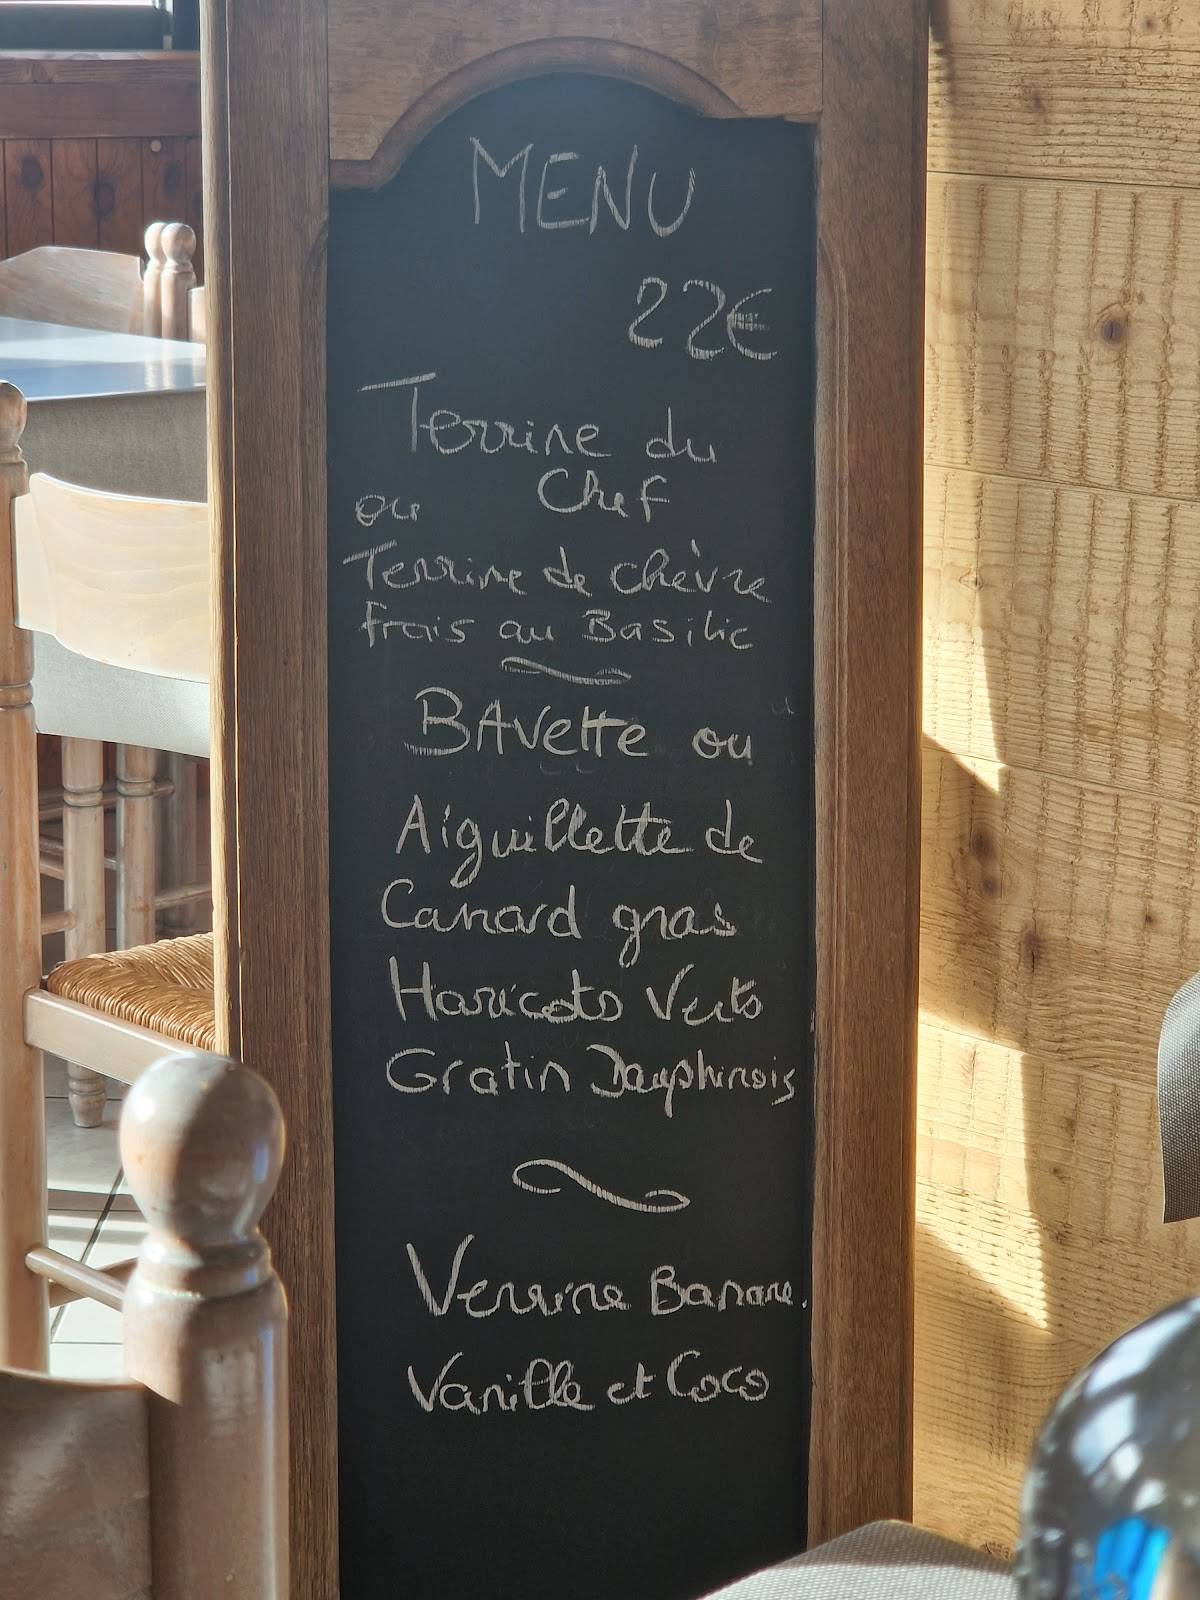 MENU
22€
Terrine du
Chef
ou
Terrine de chèvre
frais au Basilic
BAVette ou
Aiguillette de
Canard gras
Haricots Verts
Gratin Dauphinois
Verrine Banane.
Vanille et Coco